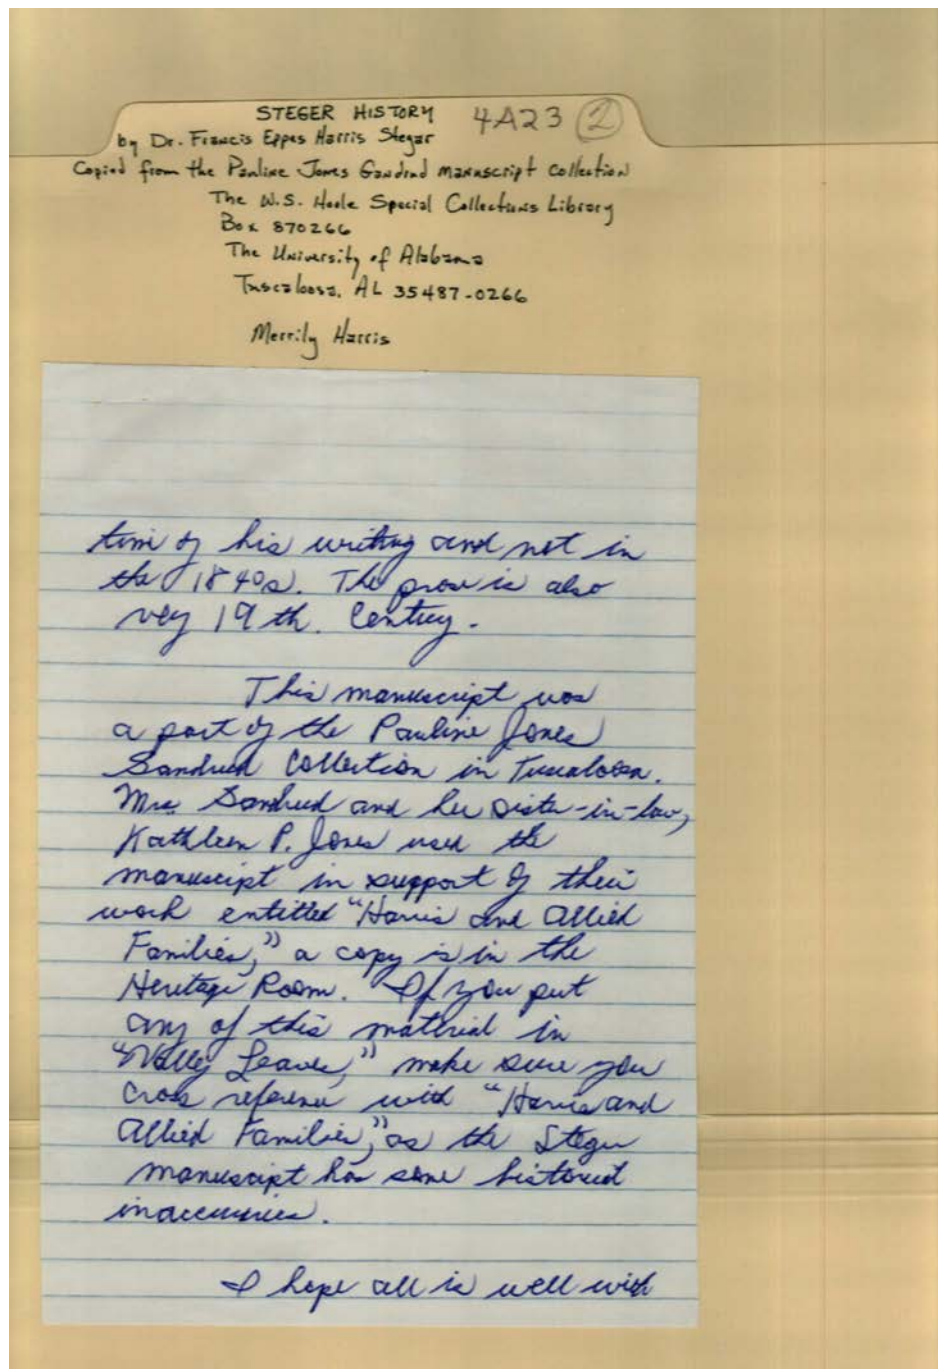 STEGER HISTORY 4A23 2
by Dr. Francis Eppes Harris Stegar
Copied from the Pauline Jones Gandrud manuscript collection
The W.S. Hoole Special Collections Library
Box 870266
The University of Alabama
Tuscaloosa, AL 35487-0266
Merrily Harris
time of his writing and not in
the 1840s. The prose is also
very 19th. Century.
This manuscript was
a part of the Pauline Jones
Gandrud Collection in Tuscaloosa.
Mrs. Gandrud and her sister-in-law,
Kathleen P. Jones used the
manuscript in support of their
work entitled "Harris and Allied
Families," a copy is in the
Heritage Room. If you put
any of this material in
"Valley Leaves," make sure you
cross reference with "Harris and
Allied Families," as the Steger
manuscript has some historical
inaccuracies.
I hope all is well with